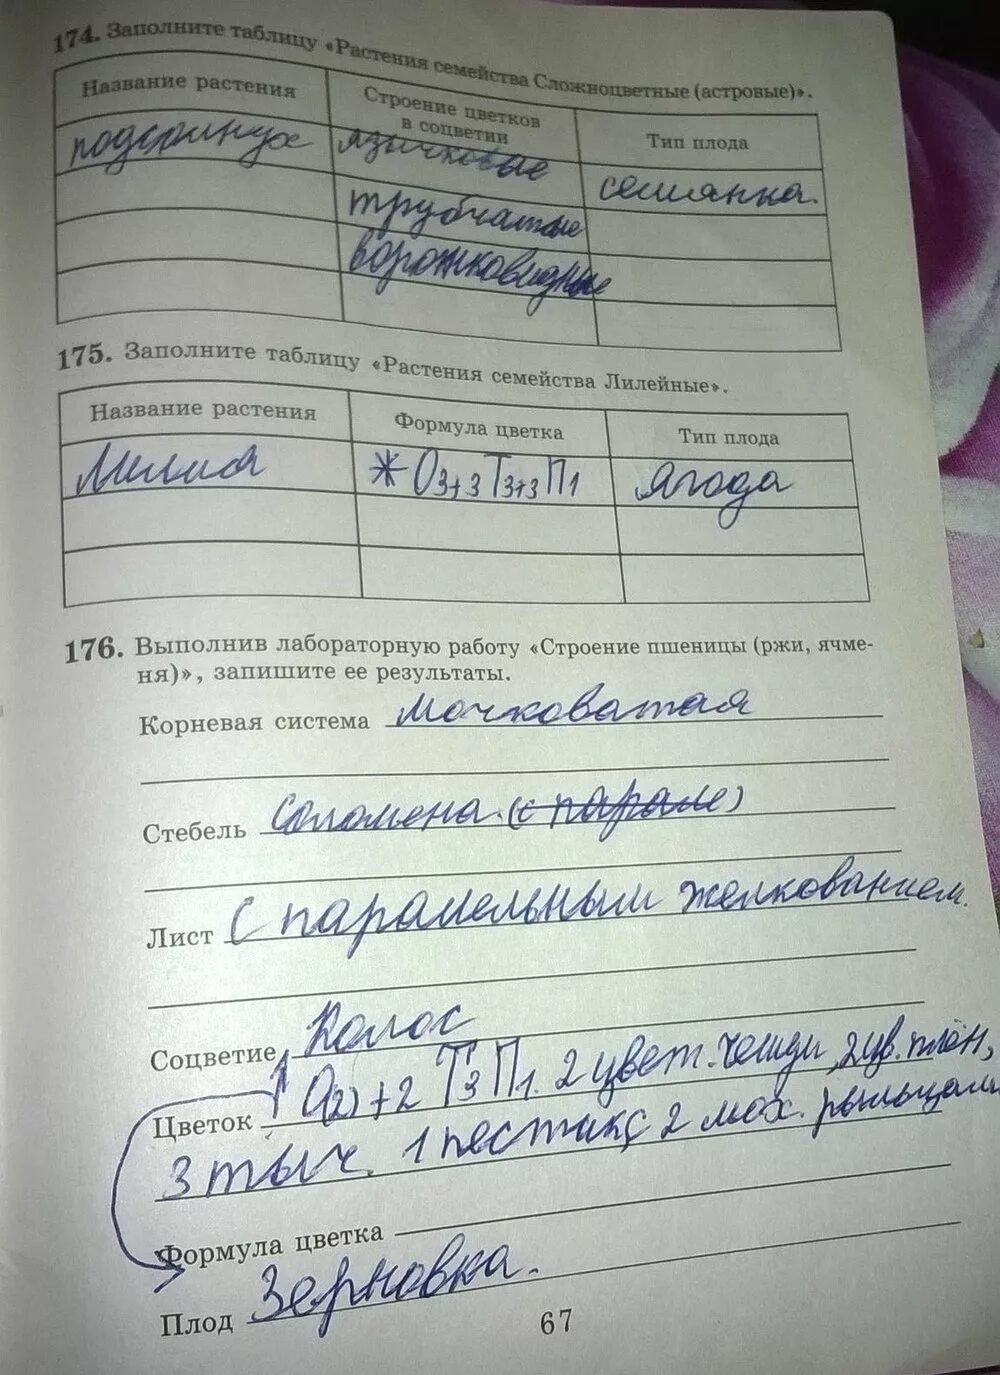 174. Заполните таблицу «Растения семейства Сложноцветные (астровые)».
Название растения
Строение цветков
в соцветии
Тип плода
подсолнух
язычковые
семянка.
трубчатые
ворожковидные
175. Заполните таблицу «Растения семейства Лилейные».
Название растения
Формула цветка
Тип плода
Лилия
* О3+3 Т3+3 П1
Ягода
176. Выполнив лабораторную работу «Строение пшеницы (ржи, ячме-
ня)», запишите ее результаты.
Корневая система мочковатая
Стебель Соломена. (с парале)
Лист С паралельным желкованием.
Соцветие Колос
Цветок ↑ О(2)+2 Т3 П1. 2 цвет. чешуи, 2 цв. плён,
3 тыч. 1 пестик с 2 мох. рыльцами
Формула цветка
Плод Зерновка.
67